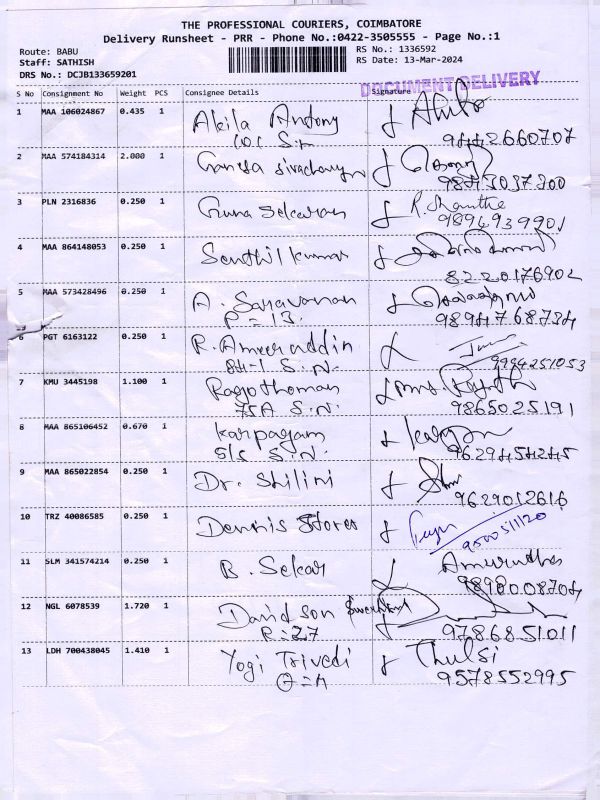 THE PROFESSIONAL COURIERS, COIMBATORE
Delivery Runsheet - PRR - Phone No.:0422-3505555 - Page No.:1
Route: BABU
Staff: SATHISH
DRS No.: DCJB133659201
RS No.: 1336592
RS Date: 13-Mar-2024
DOCUMENT DELIVERY
S No Consignment No Weight PCS Consignee Details Signature
1 MAA 106024867 0.435 1 Akila Antony
9442660707
2 MAA 574184314 2.000 1 Ganesa
9843037300
3 PLN 2316836 0.250 1 Guna Sekaran R. Shanthi
9894939901
4 MAA 864148053 0.250 1 Senthil kumar
8220176902
5 MAA 573428496 0.250 1 A. Saravanan
P = 13. 9894768734
6 PGT 6163122 0.250 1 R. Ameeruddin
84-1 S.N. 9994251053
7 KMU 3445198 1.100 1 Ragothaman
75A S.N. 9865025191
8 MAA 865106452 0.670 1 Karpagam
S/S S.N. 9629454245
9 MAA 865022854 0.250 1 Dr. Shilini
9629012616
10 TRZ 40086585 0.250 1 Dennis Stores
11 SLM 341574214 0.250 1 B. Sekar Amirutha
12 NGL 6078539 1.720 1 Davidson
R = 27 9786851011
13 LDH 700438045 1.410 1 Yogi Trivedi Thulsi
9578552995